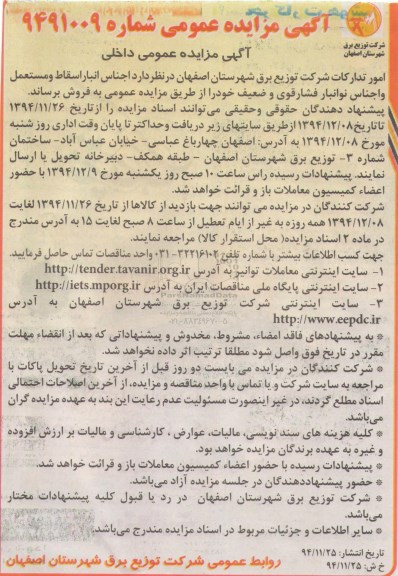 آگهی مزایده عمومی شماره ۹۴۹۱۰۰۹
شرکت توزیع برق
شهرستان اصفهان
آگهی مزایده عمومی داخلی
امور تدارکات شرکت توزیع برق شهرستان اصفهان در نظر دارد اجناس انبار اسقاط ومستعمل
واجناس نوانبار فشارقوی و ضعیف خودرا از طریق مزایده عمومی به فروش برساند.
پیشنهاد دهندگان حقوقی وحقیقی می‌توانند اسناد مزایده را ازتاریخ ۱۳۹۴/۱۱/۲۶
تاتاریخ ۱۳۹۴/۱۲/۰۸ ازطریق سایتهای زیر دریافت وحداکثر تا پایان وقت اداری روز شنبه
مورخ ۱۳۹۴/۱۲/۰۸ به آدرس: اصفهان چهارباغ عباسی- خیابان عباس آباد- ساختمان
شماره ۳- توزیع برق شهرستان اصفهان - طبقه همکف- دبیرخانه تحویل یا ارسال
نمایند. پیشنهادات رسیده راس ساعت ۱۰ صبح روز یکشنبه مورخ ۱۳۹۴/۱۲/۹ با حضور
اعضاء کمیسیون معاملات باز و قرائت خواهد شد.
شرکت کنندگان در مزایده می توانند جهت بازدید از کالاها از تاریخ ۱۳۹۴/۱۱/۲۶ لغایت
۱۳۹۴/۱۲/۰۸ همه روزه به غیر از ایام تعطیل از ساعت ۸ صبح لغایت ۱۵ به آدرس مندرج
در ماده ۲ اسناد مزایده( محل استقرار کالا) مراجعه نمایند.
جهت کسب اطلاعات بیشتر با شماره تلفن ۳۲۲۱۶۱۰۲-۰۳۱ واحد مناقصات تماس حاصل فرمایید.
۱- سایت اینترنتی معاملات توانیر به آدرس http://tender.tavanir.org.ir
۲- سایت اینترنتی پایگاه ملی مناقصات ایران به آدرس http://iets.mporg.ir
۳- سایت اینترنتی شرکت توزیع برق شهرستان اصفهان به آدرس
http://www.eepdc.ir
* به پیشنهادهای فاقد امضاء، مشروط، مخدوش و پیشنهاداتی که بعد از انقضاء مهلت
مقرر در تاریخ فوق واصل شود مطلقا ترتیب اثر داده نخواهد شد.
* شرکت کنندگان در مزایده می بایست دو روز قبل از آخرین تاریخ تحویل پاکات با
مراجعه به سایت شرکت و یا تماس با واحد مناقصه و مزایده، از آخرین اصلاحات احتمالی
اسناد مطلع گردند، در غیر اینصورت مسئولیت عدم رعایت این بند به عهده مزایده گران
می‌باشد.
* کلیه هزینه های سند نویسی، مالیات، عوارض ، کارشناسی و مالیات بر ارزش افزوده
و غیره به عهده برندگان مزایده خواهد بود.
* پیشنهادات رسیده با حضور اعضاء کمیسیون معاملات باز و قرائت خواهد شد.
* حضور پیشنهاددهندگان در جلسه مزایده آزاد می‌باشد.
* شرکت توزیع برق شهرستان اصفهان در رد یا قبول کلیه پیشنهادات مختار
می‌باشد.
* سایر اطلاعات و جزئیات مربوط در اسناد مزایده مندرج می‌باشد.
تاریخ انتشار: ۹۴/۱۱/۲۵
خ ش: ۹۴/۱۱/۲۵
روابط عمومی شرکت توزیع برق شهرستان اصفهان